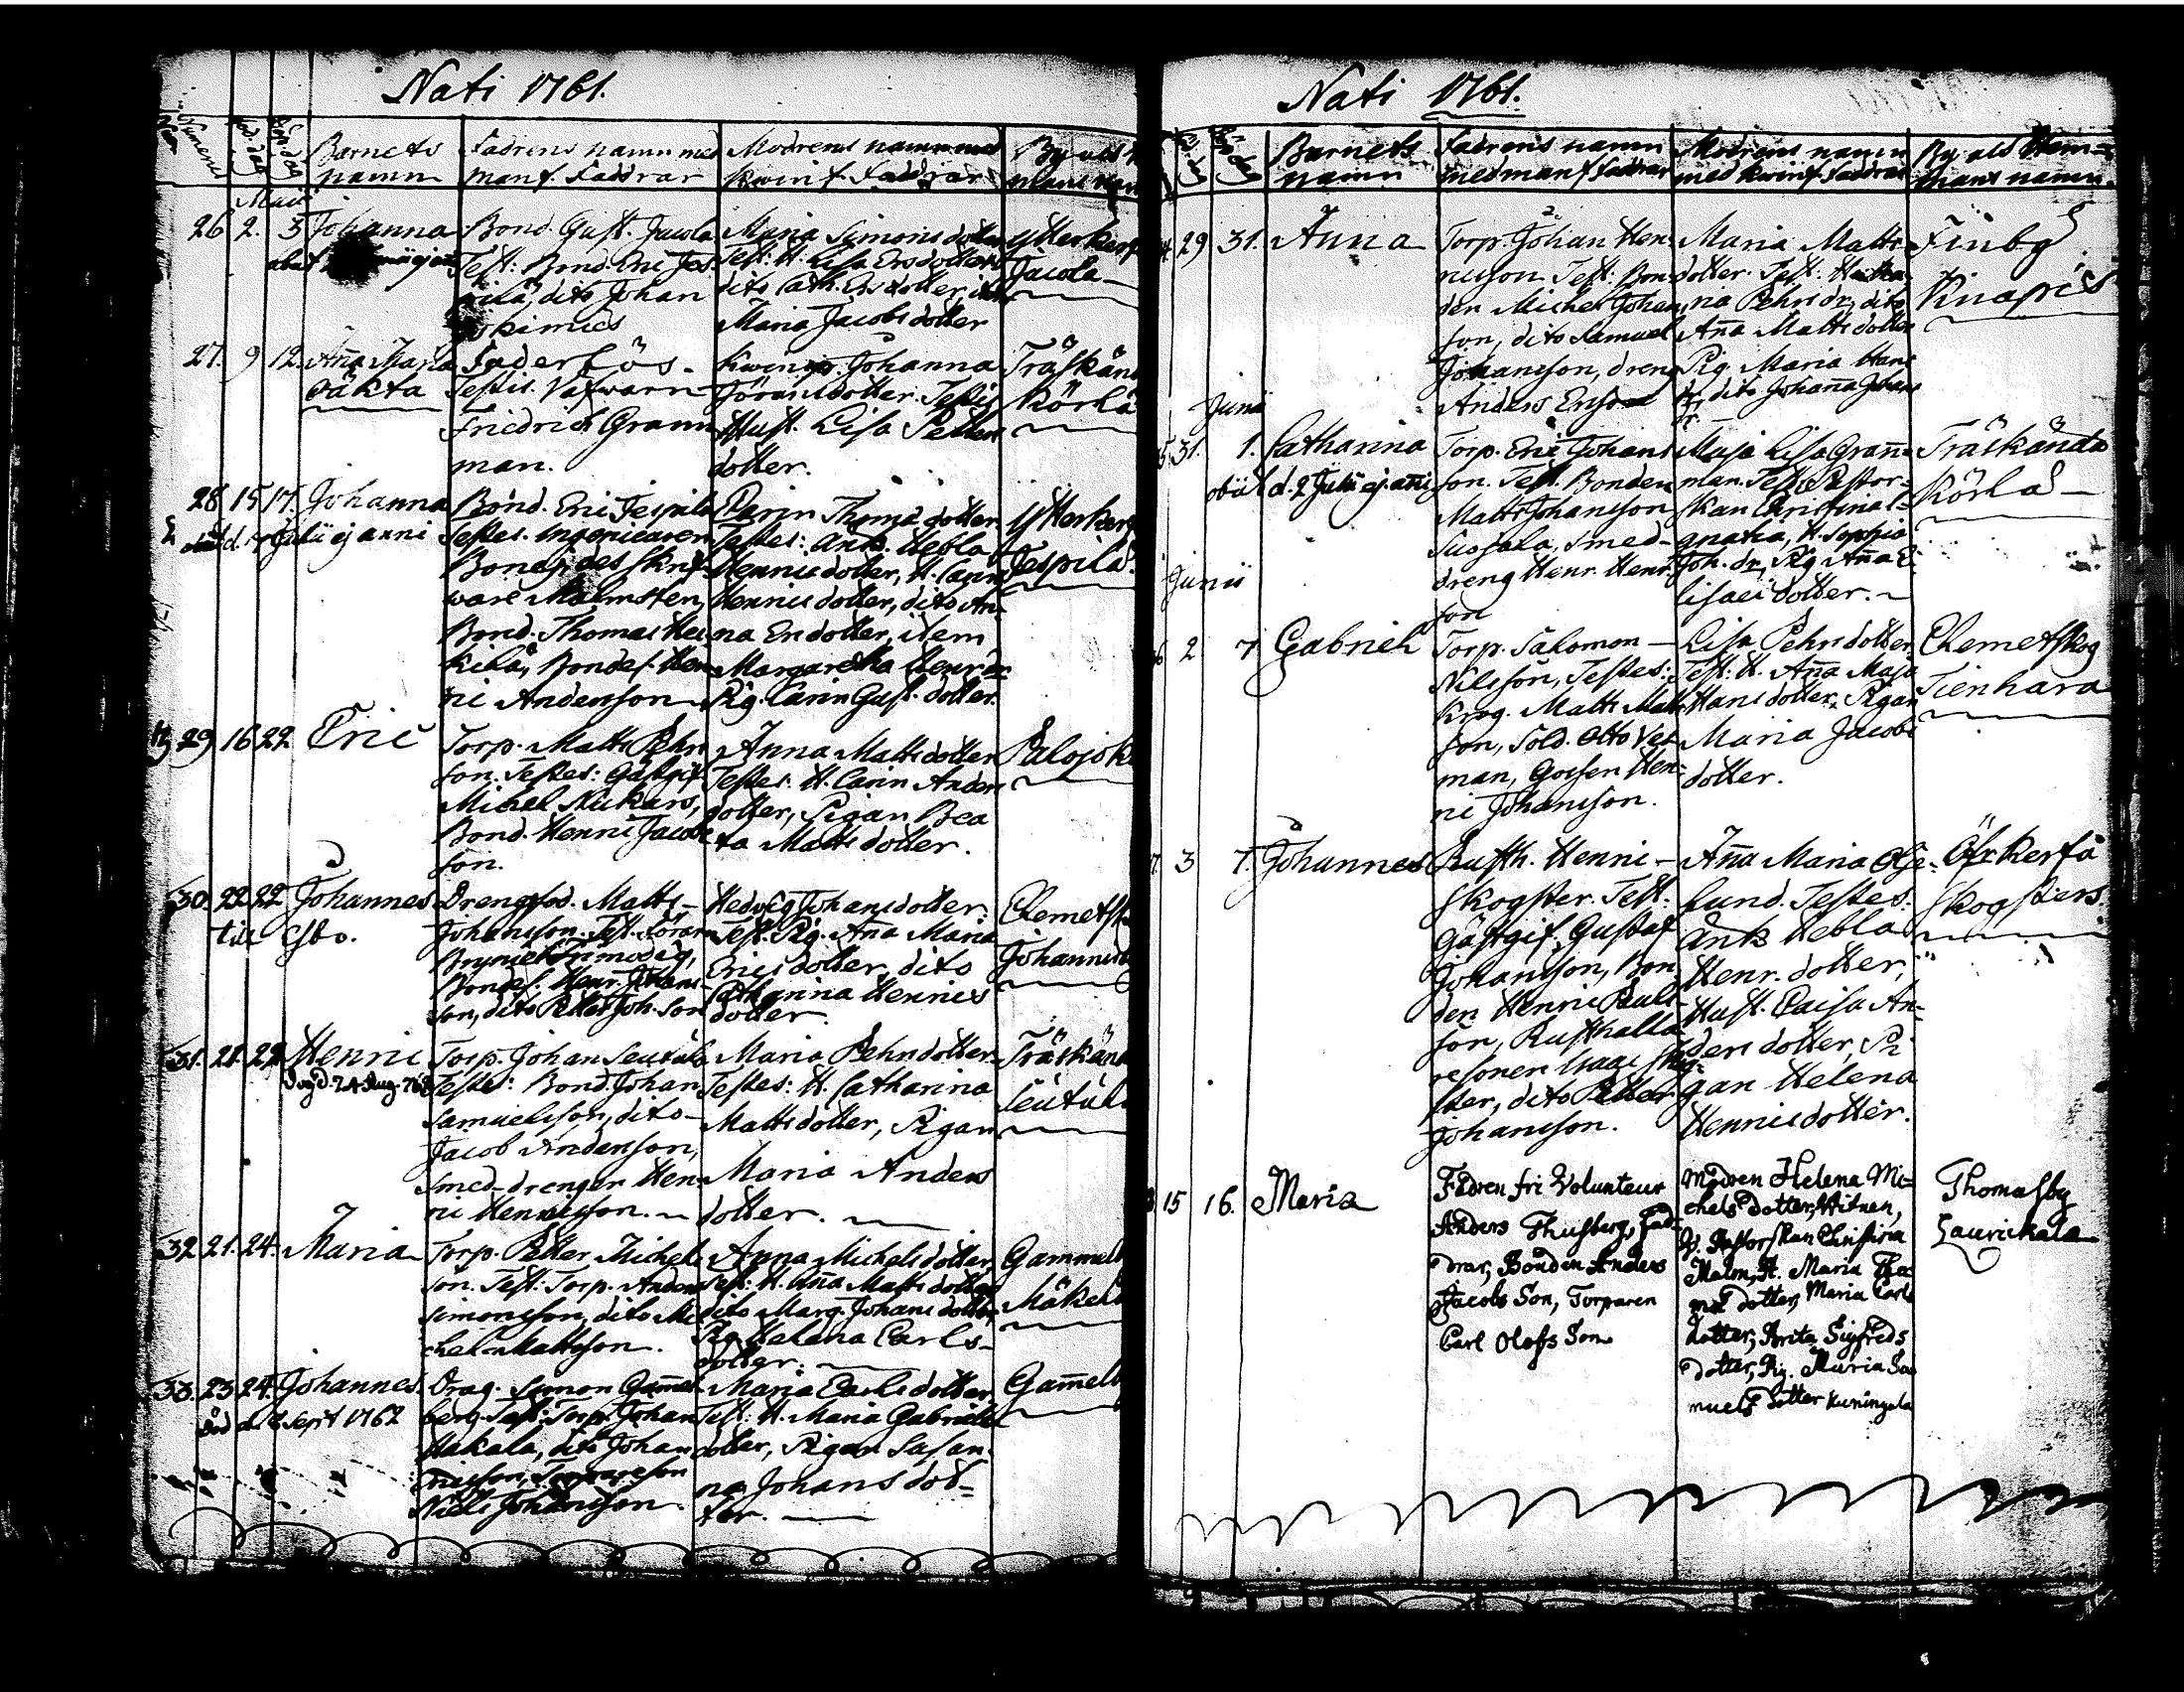 Nati 1761.
Numerus Föd. dag Döp. dag
Barnets namn
Fadrens namn med mans Faddrar
Modrens namn med kwins Faddrar
By och
Maii
26 2. 3 Johanna
Bond. Gust. Jacola
Test: Bond. Eric Jes-
pilä, dito Johan
Maria Simons dotter
Test: H. Lisa Ersdotter
dito Cath. Ersdotter,
Maria Jacobs dotter
Ytterkers
Jacola
27. 9 12. Aña Maja
oäkta
Faderlös.
Testis. Vafwarn
Friedrich Grann
man.
Kwinsp. Johanna
Jöransdotter. Testis
Hust. Lisa Petters
dotter.
Träskän
Körla
28 15 17. Johanna
Julii ej anni
Bond. Eric Jespila
Testes. Ingenieuren
Bonej, des skrif-
ware Malmsten,
Bond. Thomas Hei-
kilä, Bondes. Hen-
ric Andersson
Carin Thomæ dotter.
Testes: Ank. Hebla
Henrics dotter, H. Carin
Henrics dotter, dito An-
na Ers dotter, item
Margaretha Henr. dr
Pig. Carin Gust. dotter.
Ytterkers
Jespilä.
29 16 22 Eric
Torp. Matts Pehrs
son. Testes: Gästgif.
Michel Nickars,
Bond. Henric Jacobs
son.
Anna Mattsdotter
Testes. H. Carin Anders
dotter, Pigan Bea
ta Matts dotter.
Palojok
30. 22 22 Johannes
till Esbo.
Drengsod. Matts
Johansson. Test. Förarn
Brynielf Frimodig,
Bondes. Henr. Johans
son, dito Petter Joh. son
Hedvig Johansdotter.
Test. Pig. Aña Maria
Erics dotter, dito
Catharina Henrics
dotter.
Clemetsk
Johannis
31. 21. 22 Henric
Torp. Johan Seutula
Testes: Bond. Johan
Samuelsson, dito
Jacob Andersson,
Smed-drenger Hen-
ric Henricsson.
Maria Pehrsdotter
Testes: H. Catharina
Mattsdotter, Pigan
Maria Anders
dotter.
Träskän
Seutula
32 21. 24. Maria
Torp. Petter Michels
son. Test: Torp. Anders
Simonsson, dito Mi-
chel Mattsson.
Anna Michelsdotter
Test: H. Aña Matts dotter
dito Marg. Johans dotter,
Pig. Helena Carls-
dotter.
Gammelb
Mäkel
33. 23 24. Johannes.
död d. 8 Sept 1762
Drag. Simon Gamel-
berg. Test: Torp. Johan
Hakala, dito Johan
Ericsson, Torpareson
Niels Johansson
Maria Carlsdotter
Test: H. Maria Gabriels
dotter, Pigan Susan
na Johans dot-
ter.
Gamelb
Nati 1761.
Barnets namn
Fadrens namn med mans faddrar
Modrens namn med kwins faddrar
By och Hem-
mans namn.
29 31. Anna
Torp. Johan Hen-
ricsson. Test: Bon-
den Michel Johans
son, dito Samuel
Johansson, dreng
Anders Ersson
Maria Matts-
dotter. Test:
Pehrs dr, dito
Aña Matts dotter
Pig. Maria Hans
dr, dito Johaña Johans
dr.
Finby
Knapis
Junii
31. 1. Catharina
obiit d. 2 Julii ej. añi
Torp. Eric Johans
son. Test. Bonden
Matts Johansson
Suojala, Smed-
dreng Henr. Henr.
son
Maja Lisa Grañ-
man. Test. Pastor-
skan Christina
H. Sophia
Joh. dr, Pig. Aña E-
lisaei dotter.
Träskända
Körla
Junii
2 7 Gabriel
Torp. Salomon
Nilsson, Testes:
Krog. Matts Matts
son, Sold. Otto Ves-
man, Gossen Hen-
ric Johansson.
Lisa Pehrs dotter.
Test: H. Aña Maja
Hans dotter, Pigan
Maria Jacobs
dotter.
Clemetskog
Tienhara
3 7. Johannes
Rusth. Henric
Skogster. Test:
Gästgif. Gustaf
Johansson, Bon-
den Henric Pauls-
son, Rusthålla
resonen Isaac Skog-
ster, dito Petter
Johansson.
Aña Maria
lund. Testes:
Ank. Hebla
Henr. dotter,
Hust. Caisa An-
ders dotter, Pi-
gan Helena
Henrics dotter.
Öfr kerfå
Skogsters.
15 16. Maria
Fadren fri Volunteur
Anders Thusberg, Fad-
drar, Bonden Anders
Jacobs Son, Torparen
Carl Olofs Son
Modren Helena Mi-
chels Dotter, Witnen,
V. Pastorskan Christina
Malm, H. Maria Tho-
mæ Dotter, Maria Carls
Dotter, Brita Sigfreds
Dotter, Pig. Maria Sa-
muels Dotter Kuningala
Thomasby
Laurickala